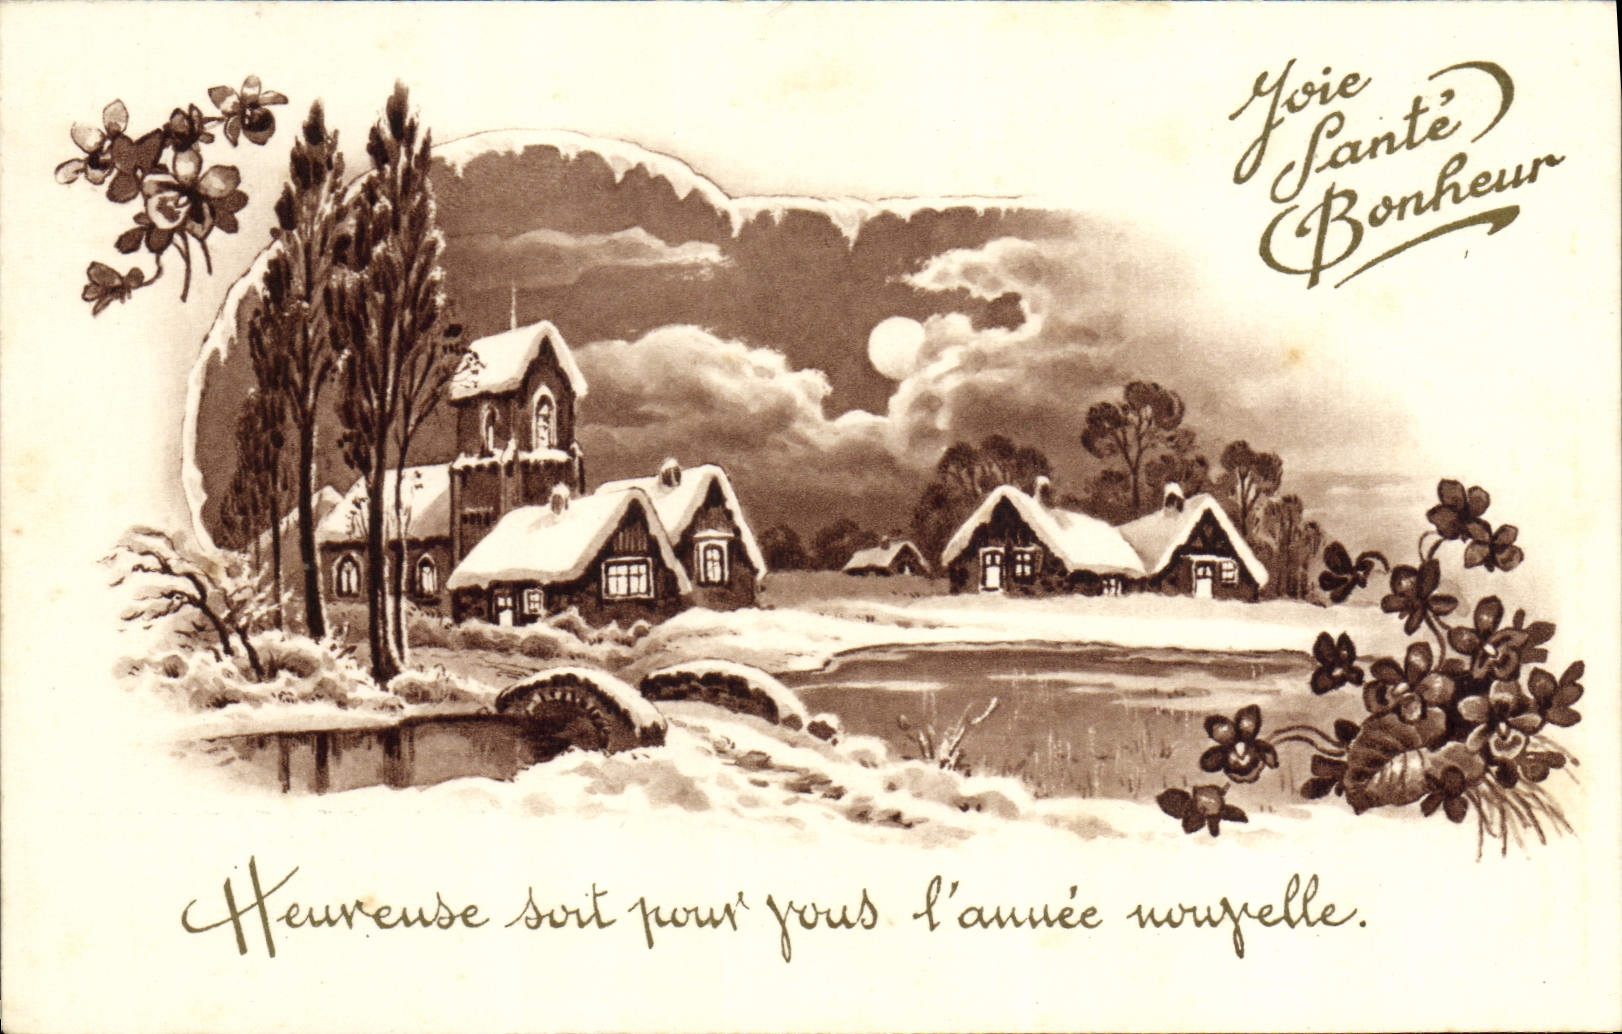 Joie
Santé
Bonheur
Heureuse soit pour vous l'année nouvelle.